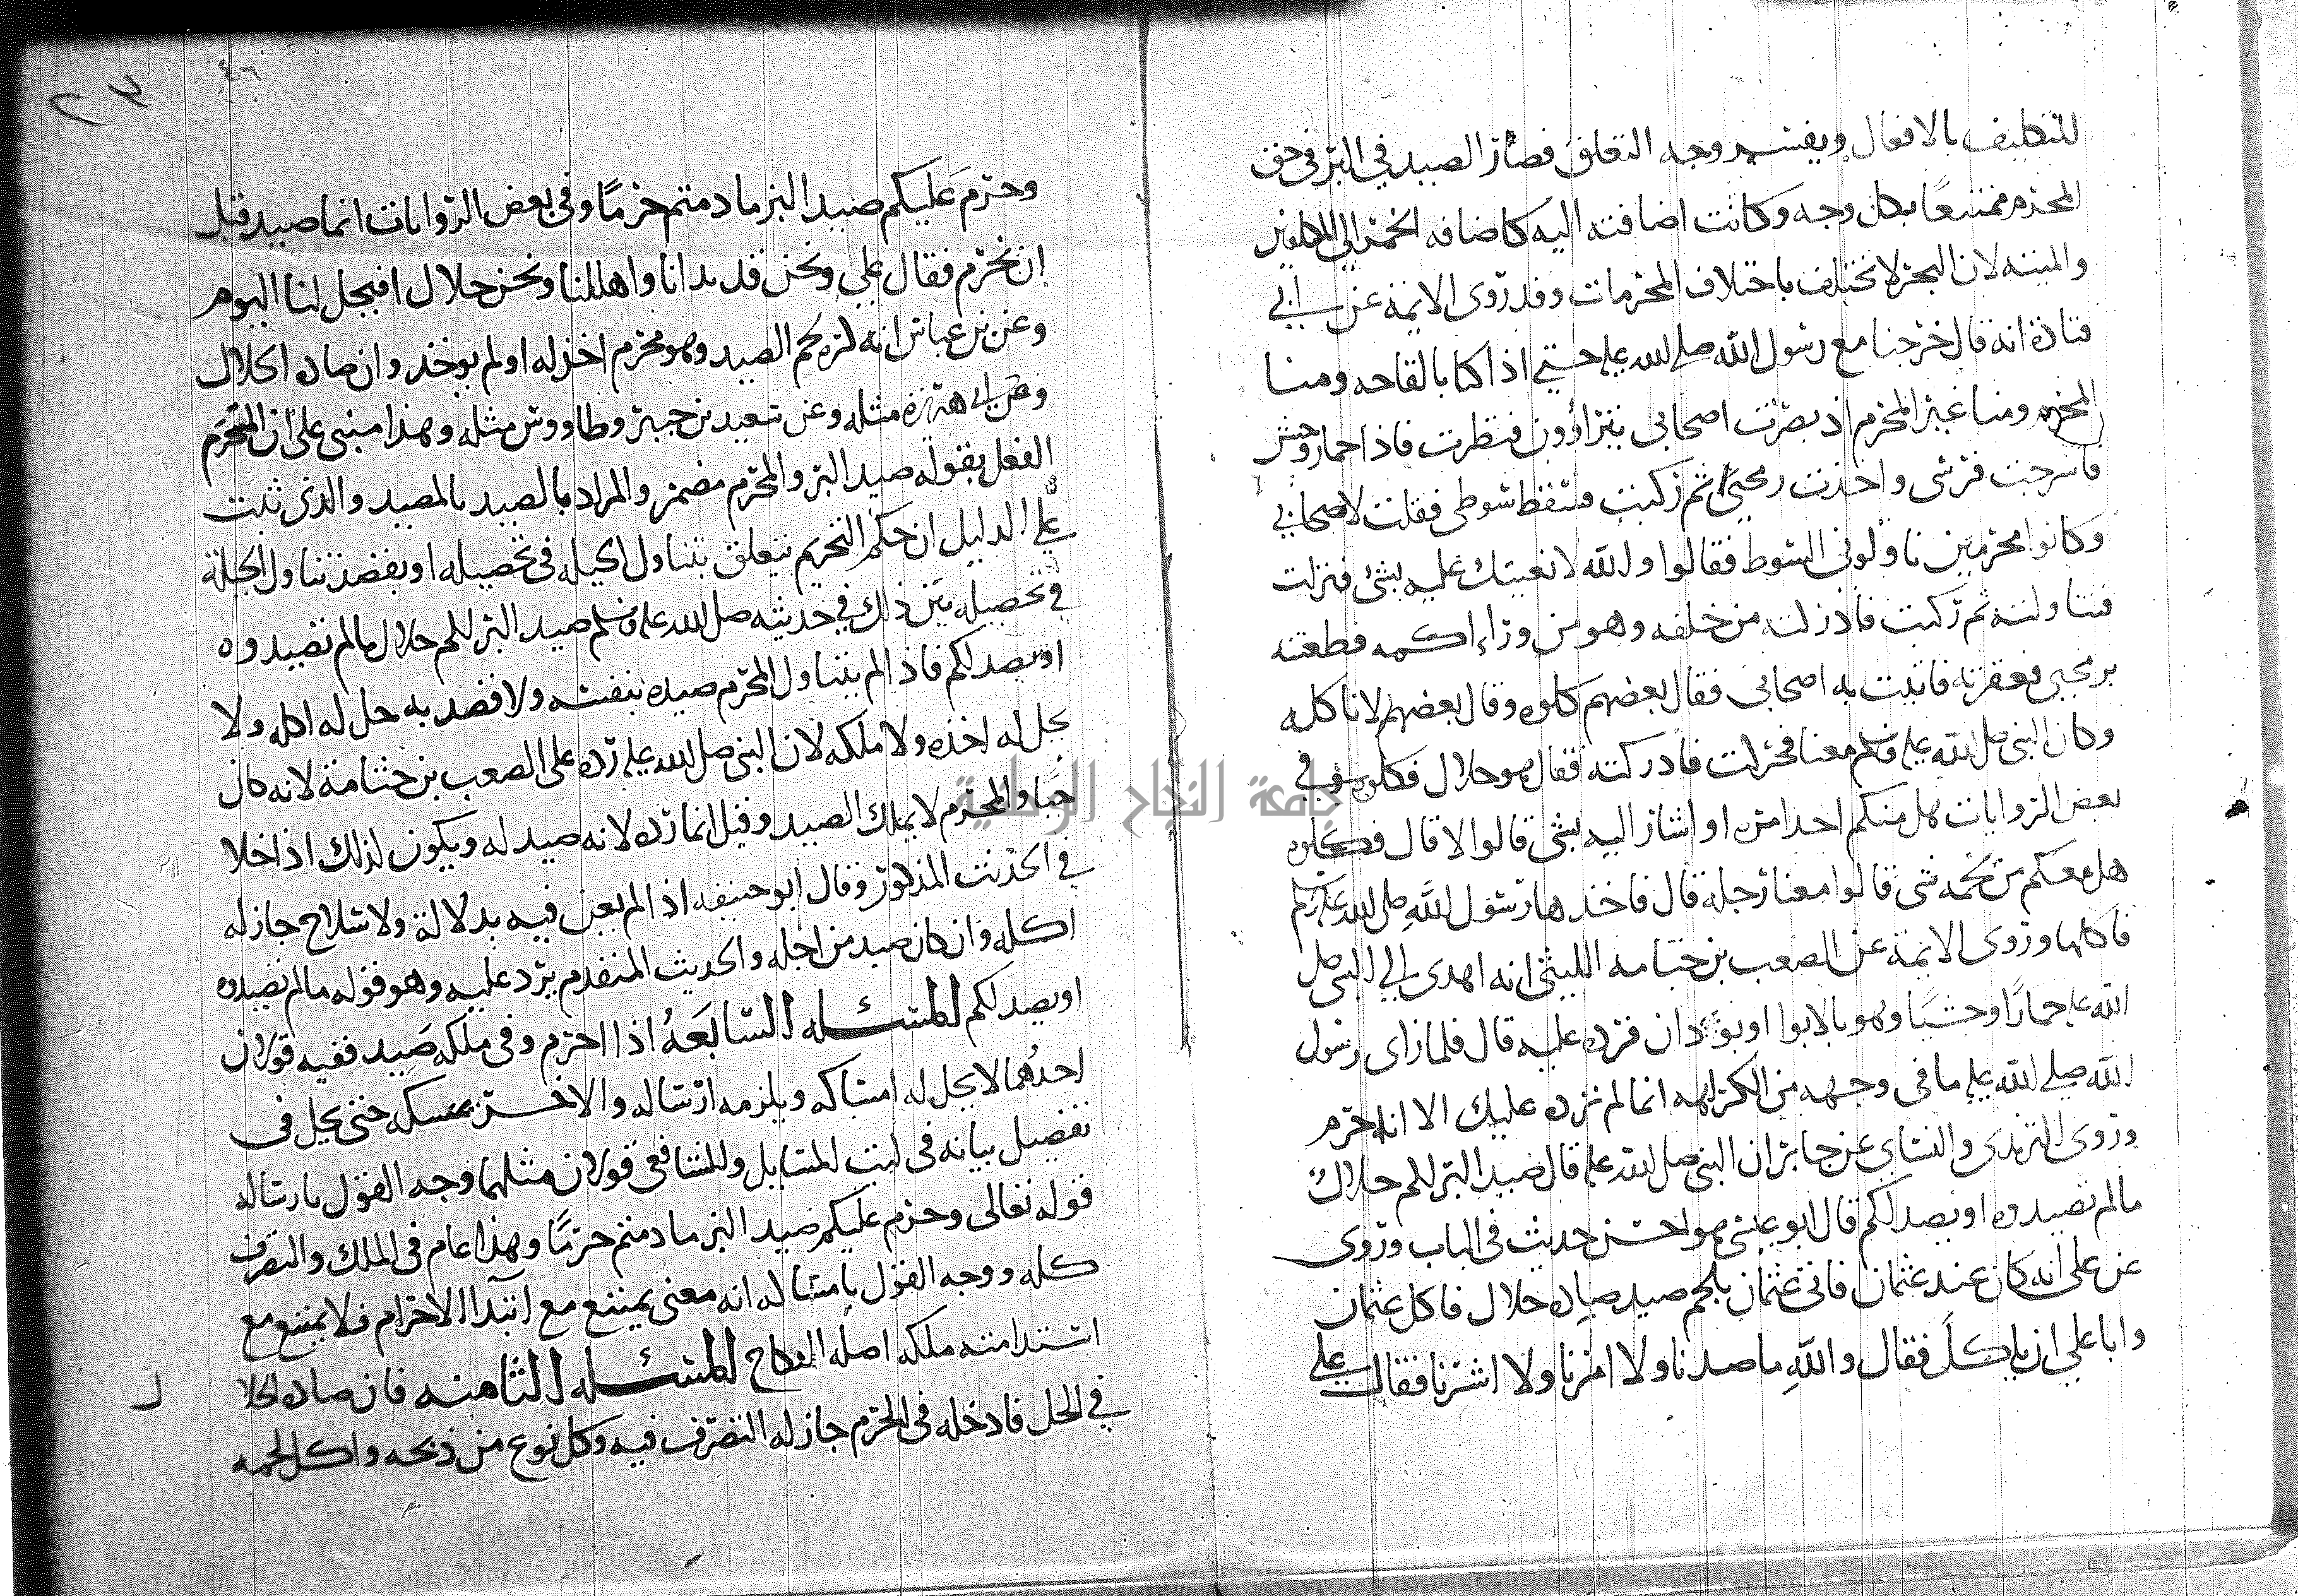 للتكليف بالافعال ويفسر وجه التعلق فصار الصيد في البر في حق
المحرم ممتنعًا بكل وجه وكانت اضافته اليه كاضافه الخمر الي المكلفين
والميته لان البحر لا تختلف باختلاف المحرمات وقد روى الايمة عن ابي
قتادة انه قال خرجنا مع رسول الله صلى الله عليه حتي اذا كنا بالقاحه ومنا
المحرم ومنا غير المحرم اذ بصرت اصحابي يتراؤون فنظرت فاذا حمار وحش
فاسرجت فرسى واخذت رمحى ثم ركبت فسقط سوطى فقلت لاصحابي
وكانوا محرمين ناولونى السوط فقالوا والله لا نعينك عليه بشئ فنزلت
فتناولته ثم ركبت فادركته من خلفه وهو من وراء اكمه فطعنته
برمحى فعقرته فاتيت به اصحابى فقال بعضهم كلوه وقال بعضهم لا ناكله
وكان النبى صلى الله عليه وسلم معنا فحركت فادركته فقال هو حلال فكلوه في
بعض الروايات هل منكم احد امره او اشار اليه بشئ قالوا لا قال فكلوه
هل معكم من لحمه شى قالوا معنا رجله قال فاخذها رسول الله صلى الله عليه وسلم
فاكلها وروى الايمة عن الصعب بن جثامه الليثى انه اهدى الي النبى صلى
الله عليه حمارًا وحشيًا وهو بالابوا او بودان فرده عليه قال فلما راى رسول
الله صلى الله عليه ما فى وجهه من الكراهه انما لم نرده عليك الا انا حرم
وروى الترمذى والنساي عن جابر ان النبى صلى الله عليه قال صيد البر لكم حلال
مالم تصيدوه او يصد لكم قال ابو عيسى هو احسن حديث فى الباب وروى
عن على انه كان عند عثمان فاتى عثمان بلحم صيد صاده حلال فاكل عثمان
وابا على ان ياكل فقال والله ما صدنا ولا امرنا ولا اشرنا فقال علي
٤٦
٢٣
وحرم عليكم صيد البر مادمتم حرمًا وفى بعض الروايات انما صيد قبل
ان نحرم فقال على ونحن قد بدانا واهللنا ونحن حلال افيحل لنا اليوم
وعن بن عباس انه كره لحم الصيد وهو محرم اخذ له او لم يوخذ وان صاده الحلال
وعن ابى هريرة مثله وعن سعيد بن جبير وطاووس مثله وهذا مبنى على ان المحرم
الفعل بقوله صيد البر والمحرم مضمر والمراد بالصيد بالمصيد والذى ثبت
على الدليل ان حكم التحريم يتعلق بتناول الحيله فى تحصيله او بقصد تناول الحيلة
في تحصيله بين ذلك في حديثه صلى الله عليه وسلم صيد البر لكم حلال مالم تصيدوه
او يصد لكم فاذا لم يتناول المحرم صيده بنفسه ولا قصد به حل له اكله ولا
يحل له اخذه ولا ملكه لان النبى صلى الله عليه رده على الصعب بن جثامة لانه كان
حيًا والمحرم لا يملك الصيد وقيل انما رده لانه صيد له ويكون لذلك اذا خلا
في الحديث المذكور وقال ابو حنيفه اذا لم يعن فيه بدلالة ولا سلاح جاز له
اكله وان كان صيد من اجله والحديث المتقدم يرد عليه وهو قوله مالم تصيدوه
او يصد لكم المسئله السابعه اذا احرم وفى ملكه صيد ففيه قولان
احدهما لا يحل له امساكه ويلزمه ارساله والاخر يمسكه حتى يحل فى
تفصيل بيانه فى المسايل وللشافعى قولان مثلهما وجه القول بارساله
قوله تعالى وحرم عليكم صيد البر ما دمتم حرمًا وهذا عام فى الملك والتصرف
كله ووجه القول بامساله انه معنى يمتنع مع ابتدا الاحرام فلا يمتنع مع
استدامته ملكه اصله النكاح المسئله الثامنه فان صاده الحلا ل
في الحل فادخله فى الحرم جاز له التصرف فيه وكل نوع من ذبحه واكل لحمه
جامعة النجاح الوطنية